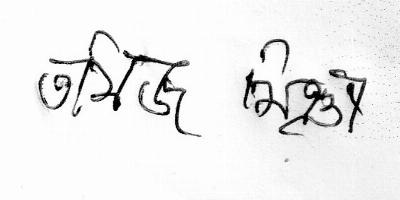 তমিজ মিঞা